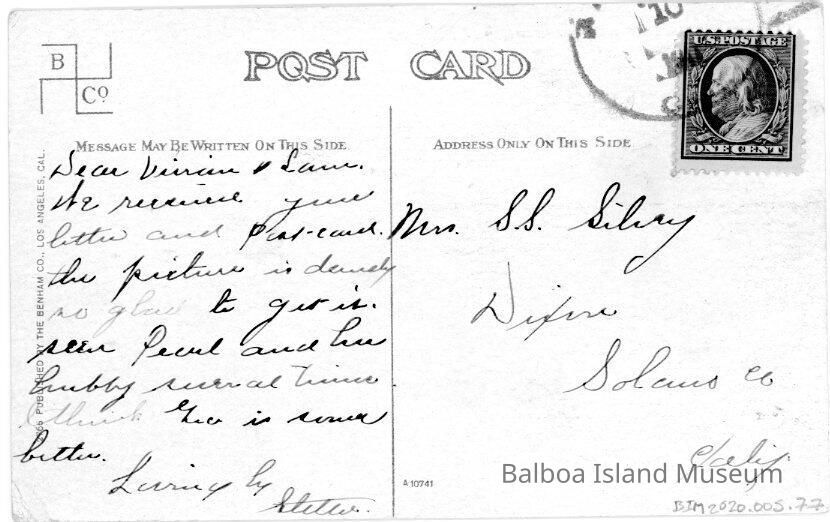 B
Co
POST CARD
10
U.S. POSTAGE
ONE CENT
MESSAGE MAY BE WRITTEN ON THIS SIDE
ADDRESS ONLY ON THIS SIDE
Dear Vivian & Sam.
We received your
letter and Post-card.
the picture is dandy
so glad to get it.
seen Pearl and her
hubby several times
I think Geo is some
better.
Loving by
Mrs. S.S. Silvey
Dixon
Solano Co
Calif.
PUBLISHED BY THE BENHAM CO., LOS ANGELES, CAL.
A 10741
Balboa Island Museum
BIM2020.005.77